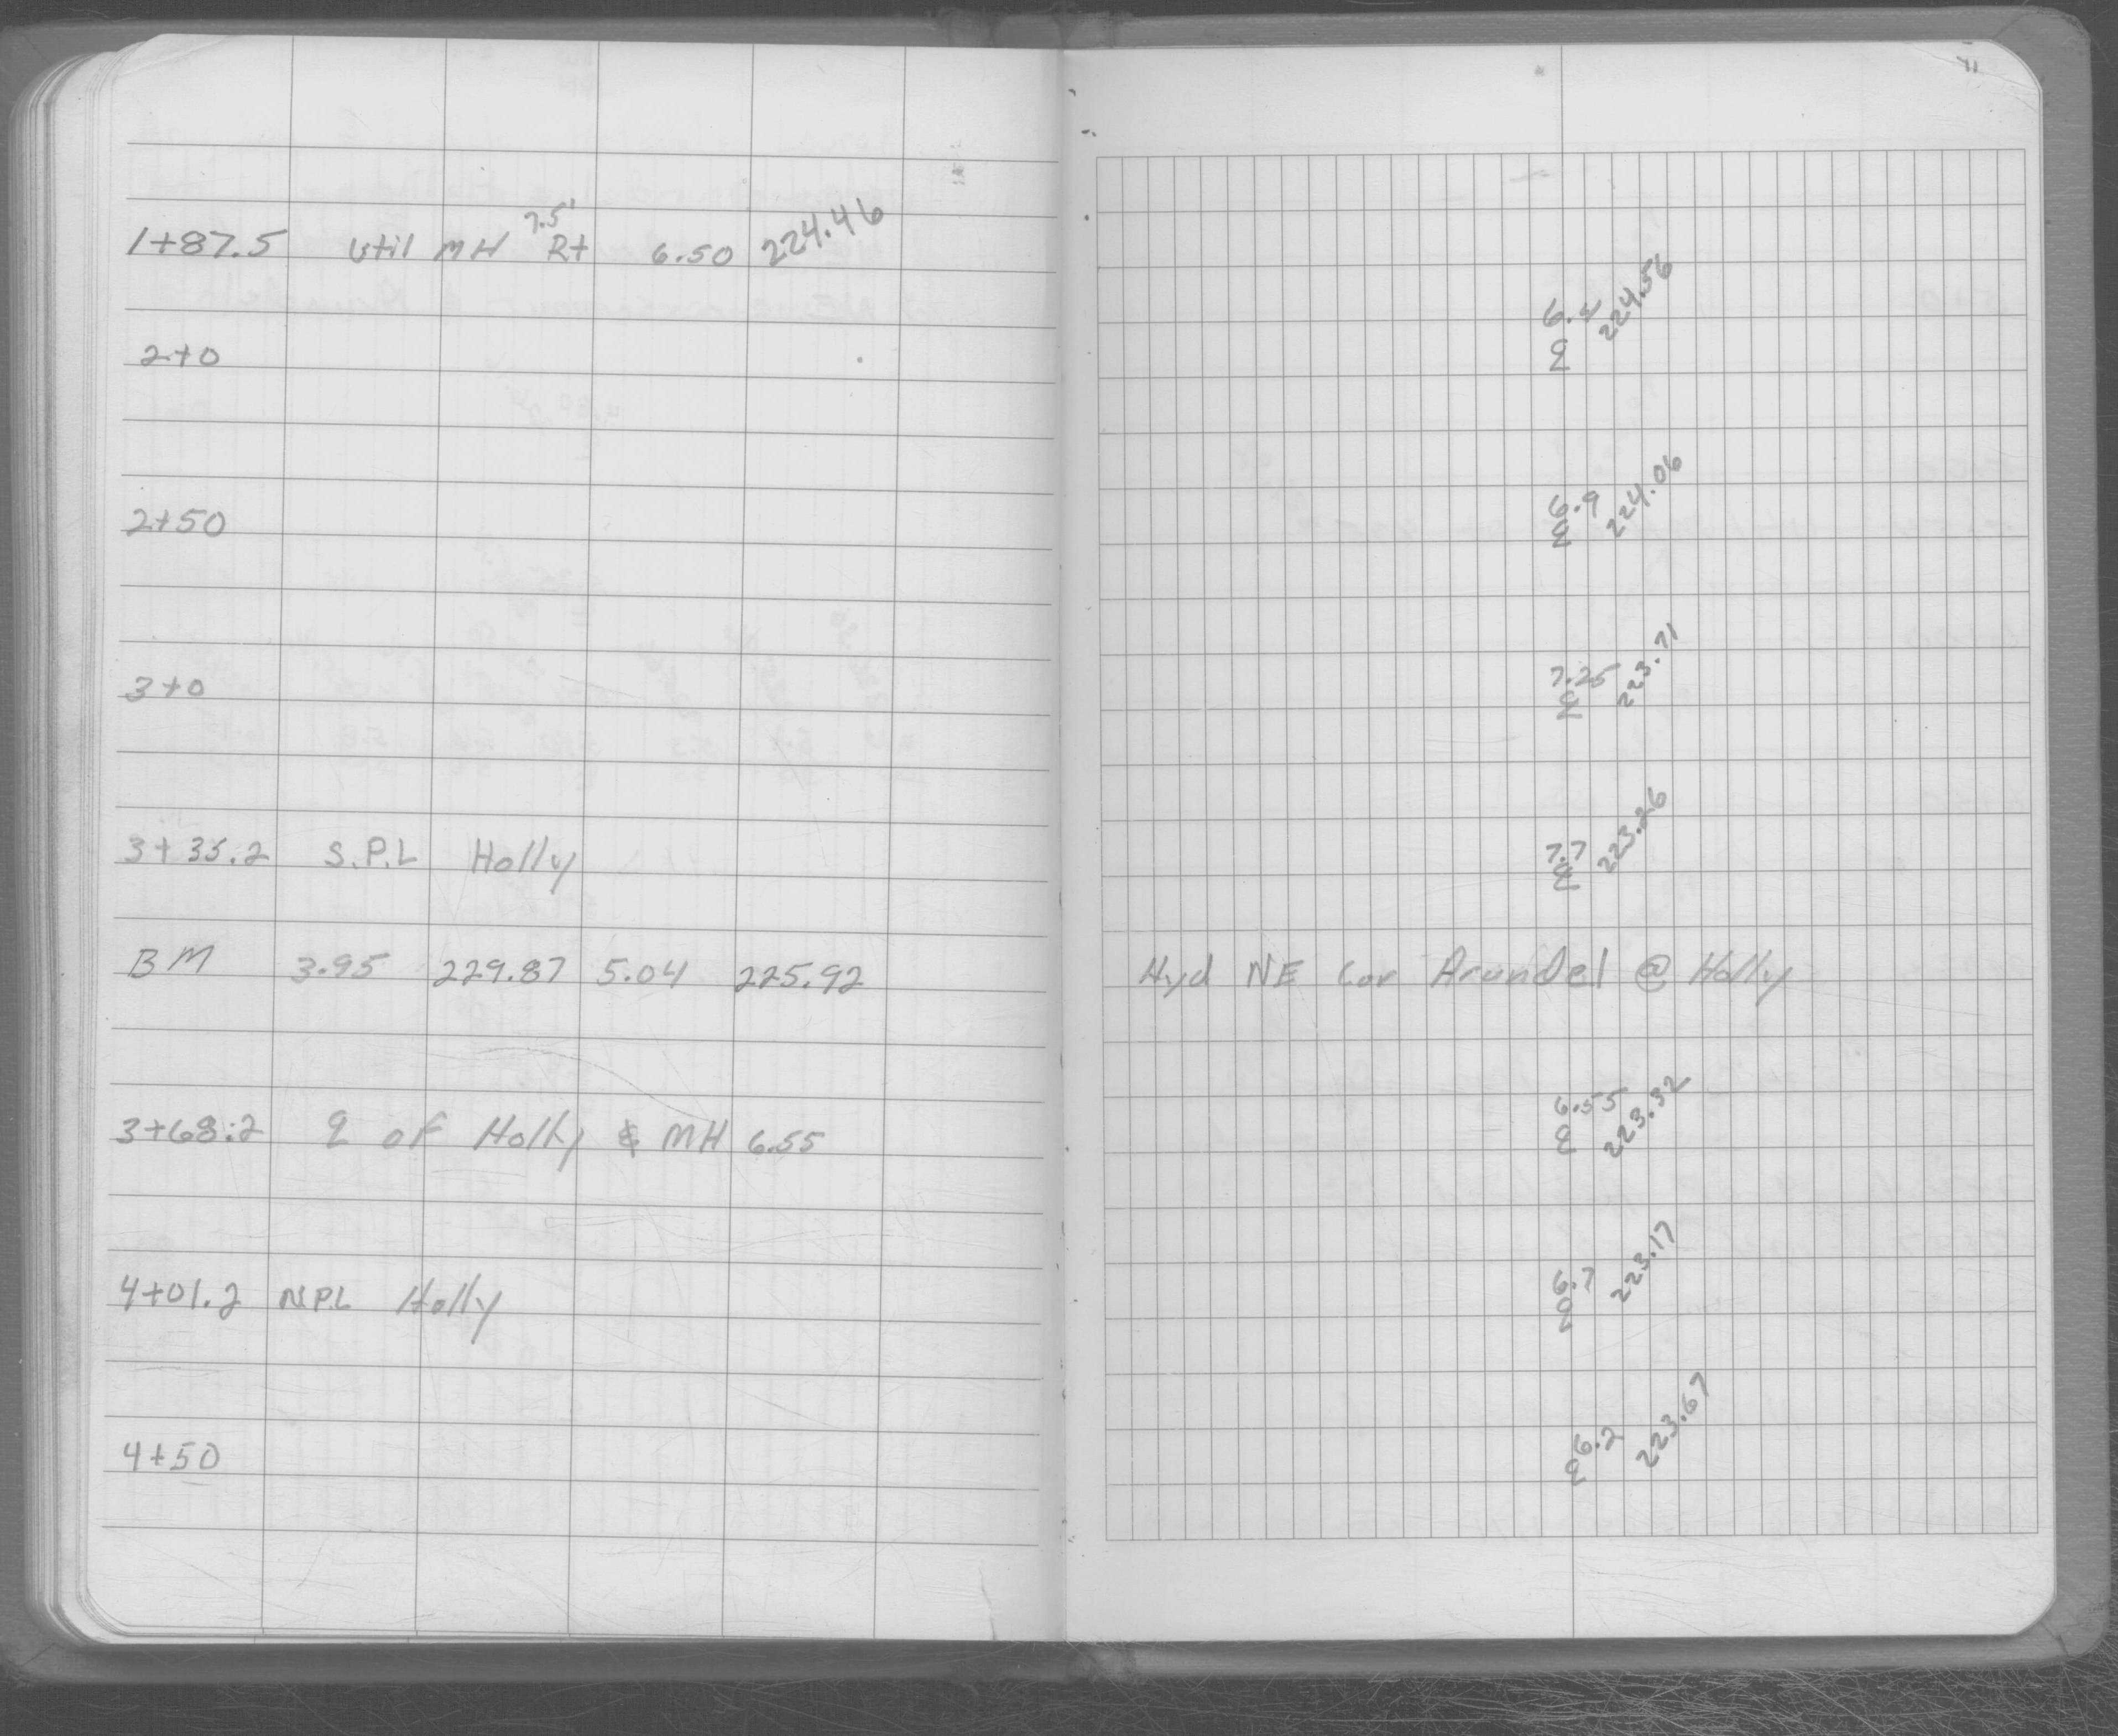 7.5'
1+87.5 Util MH Rt 6.50 224.46
6.4 224.56
2+0 ℄
6.9 224.06
2+50 ℄
7.25 223.71
3+0 ℄
7.7 223.26
3+35.2 S.P.L Holly ℄
BM 3.95 229.87 5.04 225.92 Hyd NE Cor Arundel @ Holly
6.55 223.32
3+68.2 ℄ of Holly & MH 6.55 ℄
6.7 223.17
4+01.2 N.P.L Holly ℄
6.2 223.67
4+50 ℄